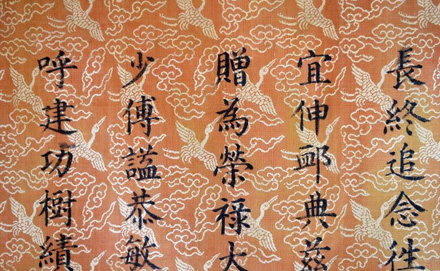 長終追念往
宜伸卹典茲
贈為榮祿大
少傅謚恭敏
呼建功樹績